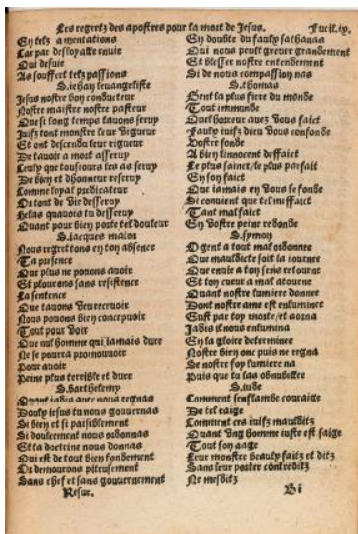 Les regretz des apostres pour la mort de Jesus. Fueil.
En telz lamentations
Car par desloyalle enuie
Qui desuie
As souffert telz passions
S. iehan leuangeliste
Jesus nostre bon conducteur
Nostre maistre nostre pasteur
Que si long temps tauons seruy
Juifz tont monstre leur vigueur
Et ont descendu leur rigueur
De tauoir a mort asseruy
Ceulx que tousiours les as seruy
De bien et dhonneur reseruy
Comme loyal predicateur
Du tont de vie desseruy
Helas quauois tu desseruy
Quant pour bien porte tel douleur
S. iacques malor
Nous regrettons en ton absence
Ta presence
Que plus ne pouons auoir
Et plourons sans resistence
La sentence
Que tauons veu receuoir
Nous pouons bien conceuoir
Tout pour voir
Que nul homme qui iamais dure
Ne se pourra promouuoir
Pour auoir
Peine plus terrible et dure
S. barthelemy
Quant iadis auec nous regnas
Doulx iesus tu nous gouuernas
Si bien et si paisiblement
Si doulcement nous ordonnas
Et ta doctrine nous donnas
Qui est de tout bien fondement
Or demourons piteusement
Sans chef et sans gouuernement
Resur.
En double du faulx sathanas
Qui nous peult greuer grandement
Et blesser nostre entendement
Si de nous compassion nas
S. thomas
Gent la plus fiere du monde
Tout immunde
Quel horreur auez vous faict
Faulx iuifz dieu vous confonde
Vostre fonde
A bien linnocent deffaict
Le plus sainct, le plus parfait
En son faict
Que iamais en vous se fonde
Si conuient que tel meffaict
Tant mal faict
En vostre peine redonde
S. symon
O gent a tout mal ordonnee
Que mauldicte soit la iournee
Que enuie a ton sens retourne
Et ton cueur a mal atourne
Quant nostre lumiere donnee
Dont nostre ame est enluminee
Eust par toy morte, et aorna
Jadis il nous enlumina
En la gloire determinee
Nostre bien onc puis ne regna
Se nostre foy lumiere na
Puis que tu las obnubilee
S. iude
Comment senflambe couraige
De tel raige
Comment ces iuifz mauldictz
Quant vng homme iuste est saige
Tout son aage
Leur monstre beaulx faitz et ditz
Sans leur porter contreditz
Ne mesditz
Bi